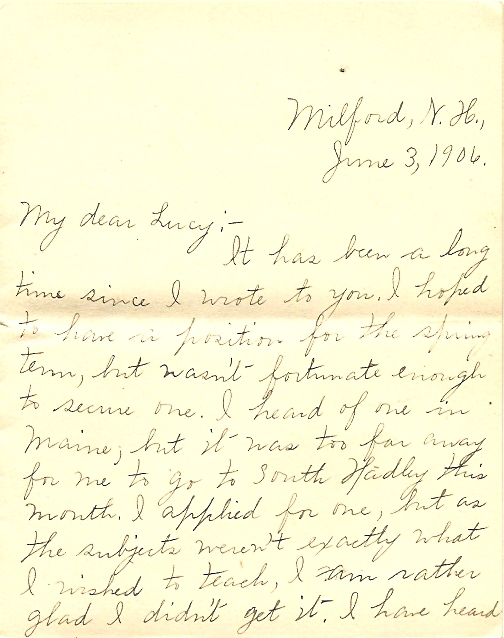 Milford, N. H.,
June 3, 1906.
My dear Lucy:-
It has been a long
time since I wrote to you. I hoped
to have a position for the spring
term, but wasn't fortunate enough
to secure one. I heard of one in
Maine; but it was too far away
for me to go to South Hadley this
month. I applied for one, but as
the subjects weren't exactly what
I wished to teach, I am rather
glad I didn't get it. I have heard